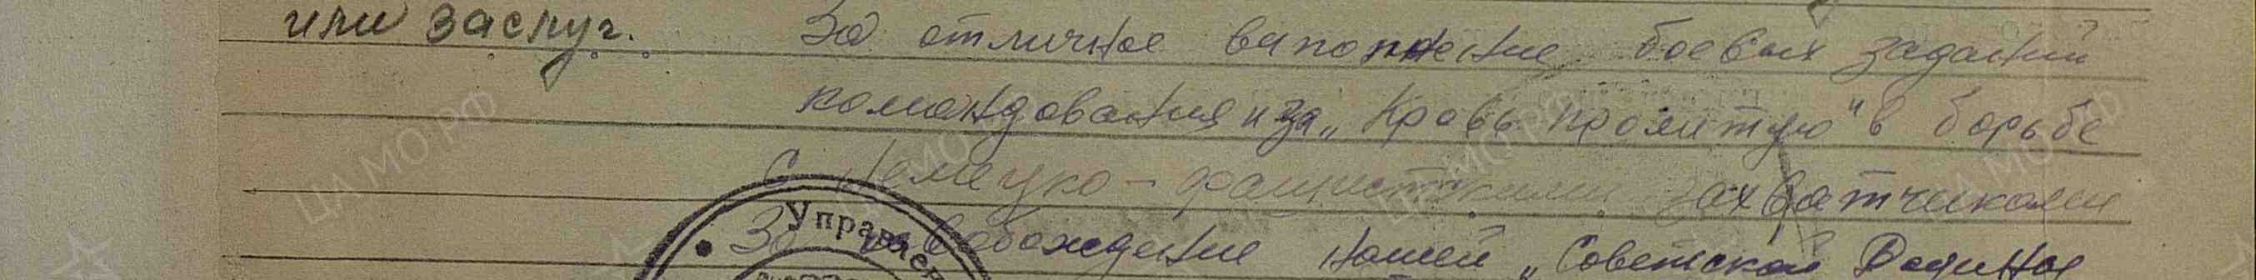 или заслуг. За отличное выполнение боевых заданий
командования и за „Кровь пролитую" в борьбе
с немецко-фашистскими захватчиками
За освобождение нашей „Советской Родины
Управлен
ЦА МО РФ